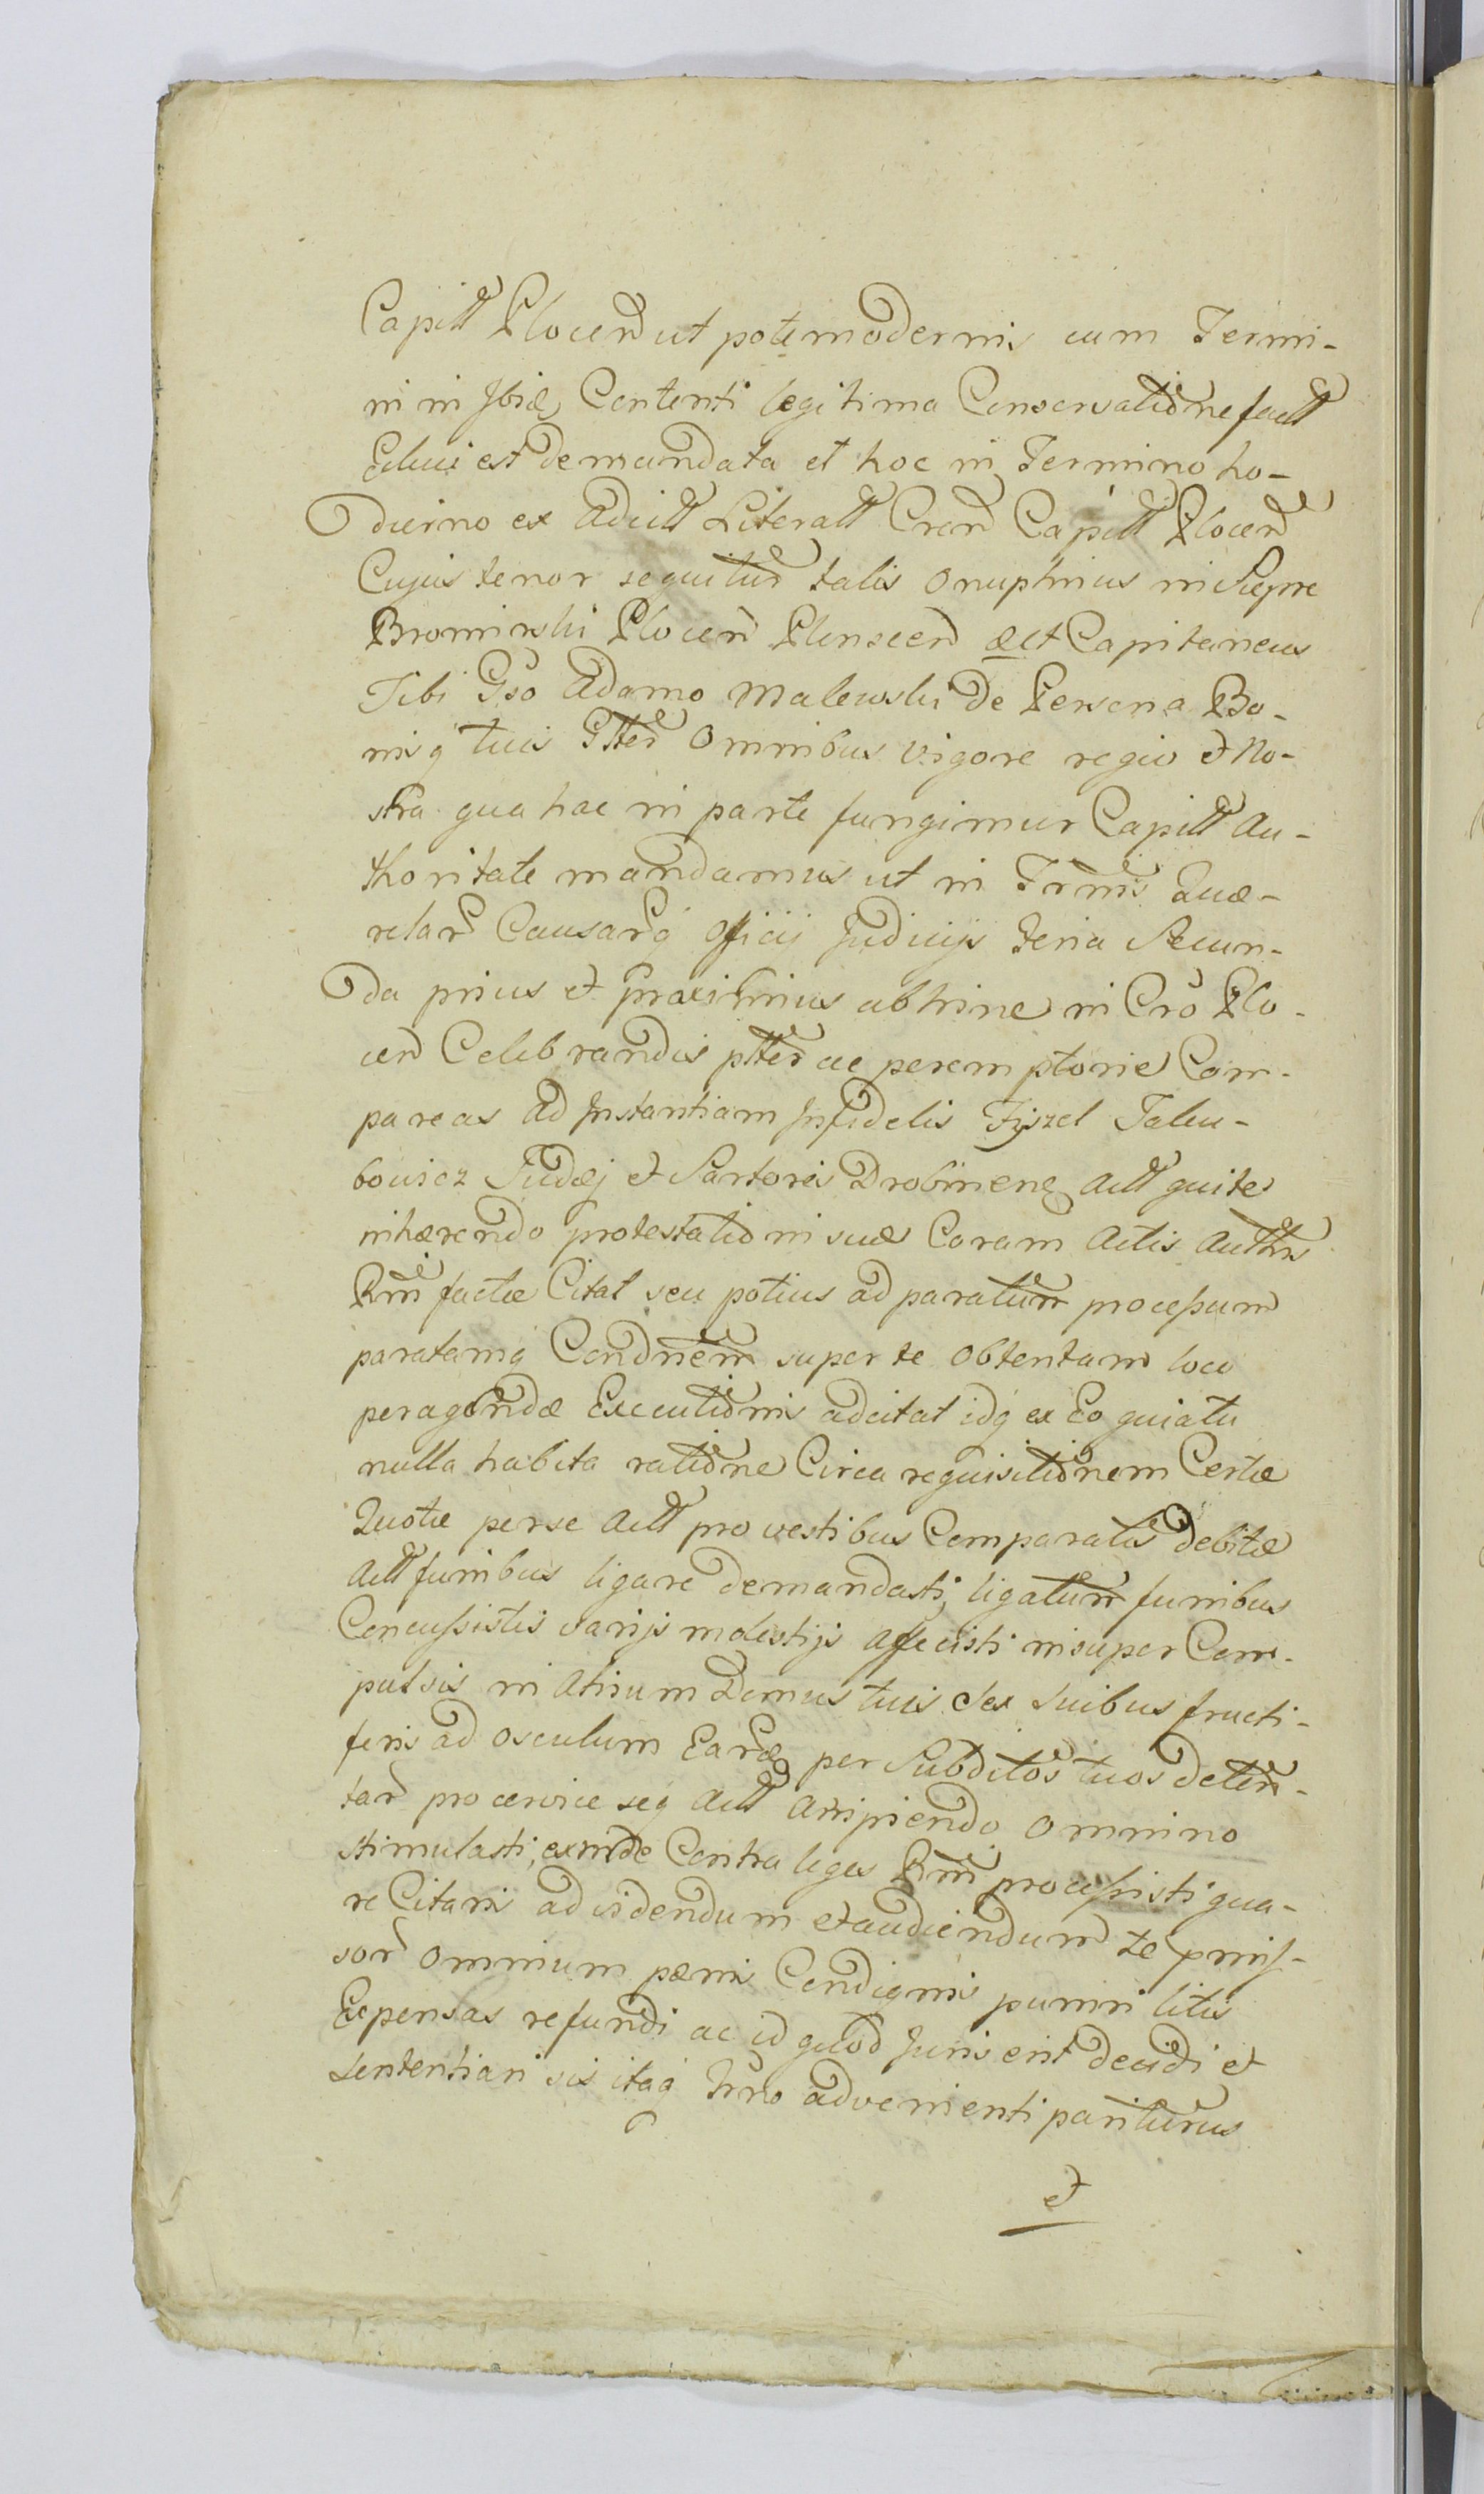 Capitł Plocen ut pote modernis cum Termi-
ni in Ibidē Contenti legitima Conservatione fact
Elui est demandata et hoc in Termino ho-
dierno ex Adcitt Literatt Cren Capitt Plocen
Cujus tenor sequitur talis Onuphrius in Siepre
Bromirski Plocen Plonscen &ct Capitaneus
Tibi Gso Adamo Malewski de Persona Bo-
nisq tuis Gtter Omnibus vigore regio et No-
stra qua hac in parte fungimur Capitt Au-
thoritate mandamus ut in Trmis Quæ-
relar Causarq officij Judicijs feria Secun-
da prius et proximius abhinc in Cro Plo-
cen Celebrandis ptter ac peremptorie Com-
pareas ad Instantiam Infidelis Fiszel Jaku-
bowicz Judæj et Sartoris Drobinens Actt qui te
inhærendo protestationi suæ Coram Actis Authn
Rm factæ Citat seu potius ad paratum processum
paratamq Condnem super te obtentam loco
peragendæ Executionis adcitat idq ex Eo quia tu
nulla habita ratione Circa requisitionem Certæ
Quotæ per se Actt pro vestibus Comparatis debitæ
Actt funibus ligare demandasti, ligatum funibus
Concussistis varijs molestijs affecisti insuper Com-
pulsis in atrium Domus tuis sex suibus fructi-
feris ad osculum Earde per Subditos tuos deten-
tar pro cervice seq Actt arripiendo omnino
stimulasti, exinde Contra leges Rm processisti qua-
re Citaris ad videndum et audiendum te pmis-
sor omnium pænis Condignis puniri litis
Expensas refundi ac id quod Juris erit decidi et
sententiari sis itaq Trno advenienti pariturus
et